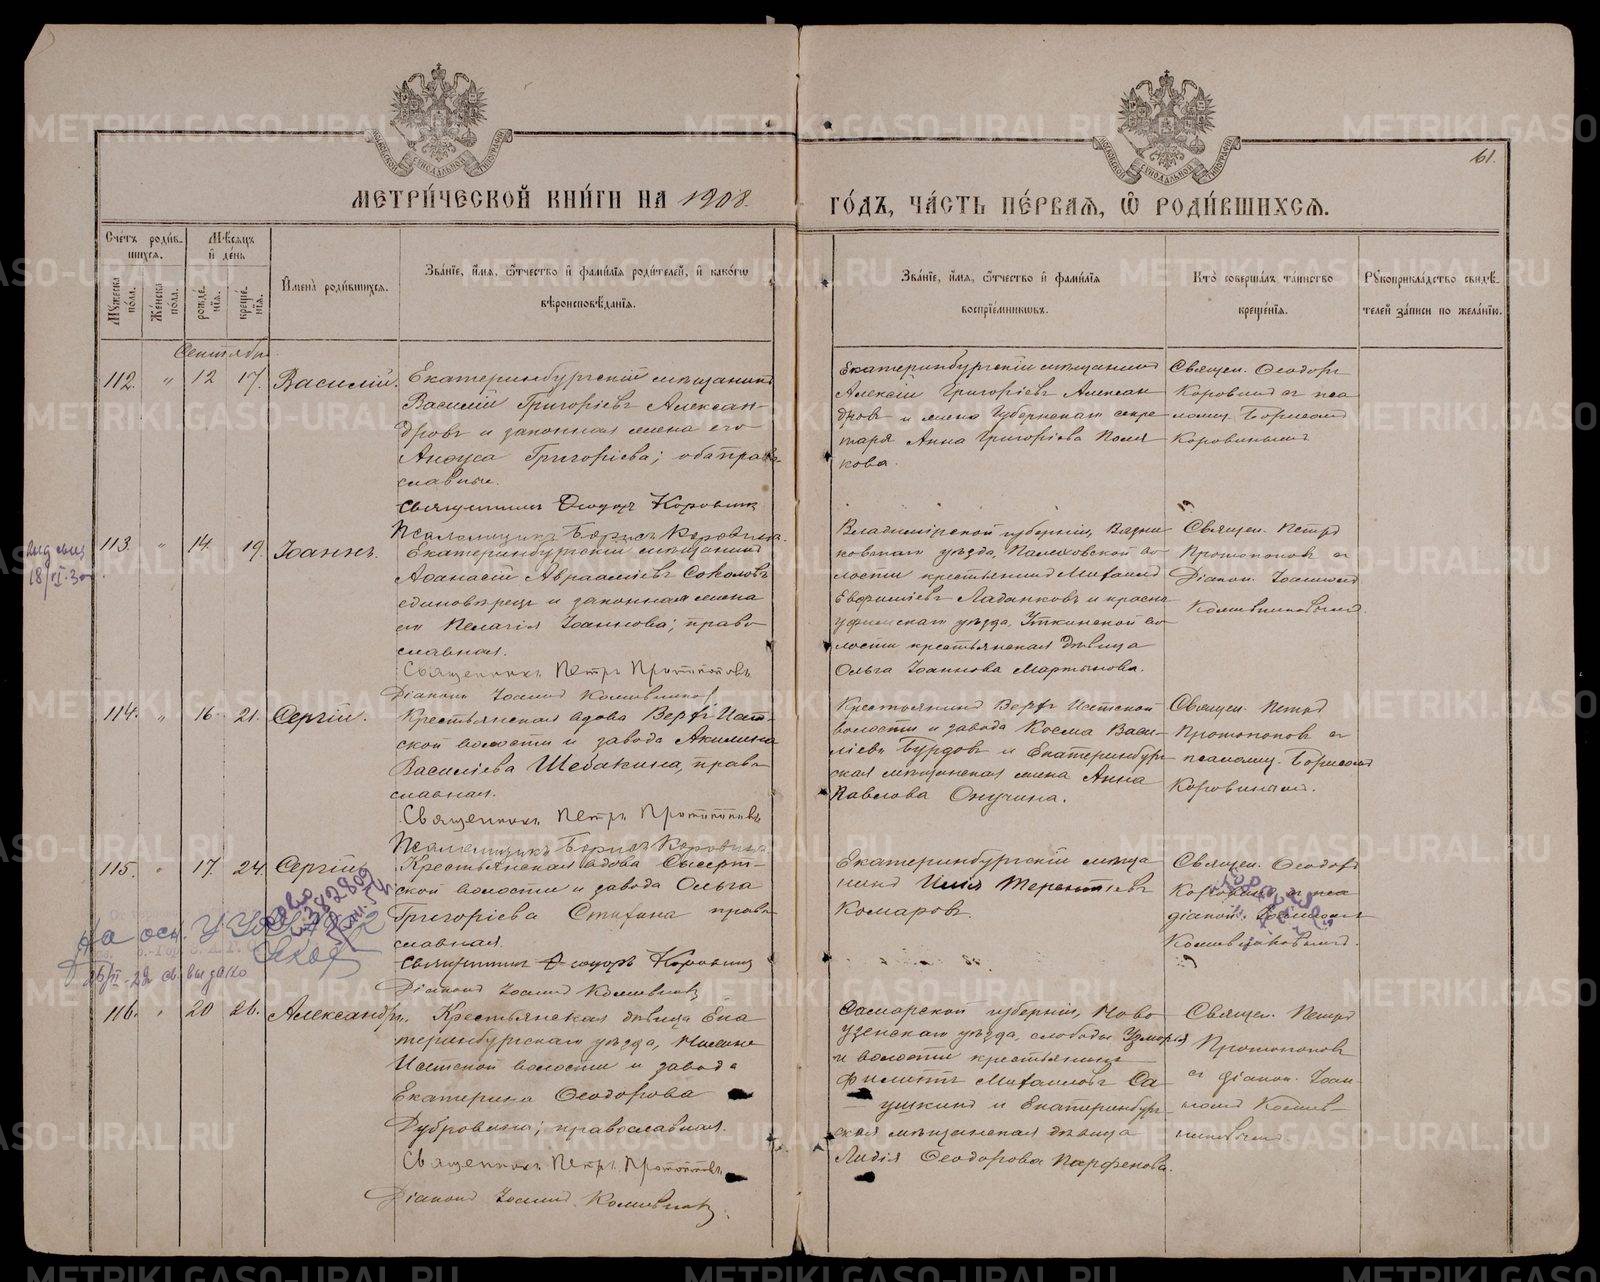 61.
МЕТРИ́ЧЕСКОЙ КНИ́ГИ НА 1908.
ГО́ДЪ, ЧА́СТЬ ПЕ́РВАѦ, Ѡ҆ РОДИ́ВШИХСѦ.
Сче́тъ роди́вшихсѧ.
Мꙋ́жеска по́ла.
Же́нска по́ла.
Мѣ́сѧцъ и҆ де́нь
рожде́нїѧ.
креще́нїѧ.
И҆мена̀ роди́вшихсѧ.
Зва́нїе, и҆́мѧ, ѻ҆́тчество и҆ фами́лїѧ роди́телей, и҆ како́гѡ
вѣроисповѣ́данїѧ.
Зва́нїе, и҆́мѧ, ѻ҆́тчество и҆ фами́лїѧ
воспрїе́мникѡвъ.
Кто̀ соверша́лъ та́инство
креще́нїѧ.
Рꙋкоприкла́дство свидѣ́-
телей за́писи по жела́нїю.
Сентябрь
112. " 12 17. Василій.
Екатеринбургскій мѣщанинъ
Василій Григоріевъ Алексан-
дровъ и законная жена его
Анфуса Григоріева; оба право-
славные.
Священникъ Ѳеодоръ Коровинъ
Псаломщикъ Борисъ Коровинъ.
Екатеринбургскій мѣщанинъ
Алексій Григоріевъ Алексан
дровъ и жена Губернскаго секре
таря Анна Григоріева Поля
кова.
Священ. Ѳеодоръ
Коровинъ съ пса
ломщ. Борисомъ
Коровинымъ
113. " 14. 19. Іоаннъ.
18/VI.30
Екатеринбургскій мѣщанинъ
Аѳанасій Авраамієвъ Соколовъ
единовѣрецъ и законная жена
его Пелагія Іоаннова; право-
славная.
Священникъ Петръ Протопоповъ
Діаконъ Іоаннъ
Владимірской губерніи, Вязни
ковскаго уѣзда, Палеховской во
лости крестьянинъ Михаилъ
Евфиміевъ Ладанковъ и красно
уфимскаго уѣзда, Уткинской во
лости крестьянская дѣвица
Ольга Іоаннова Мартынова.
Священ. Петръ
Протопоповъ съ
Діакон. Іоанномъ
114. " 16. 21. Сергій.
Крестьянская вдова Верхъ-Исет-
ской волости и завода Акилина
Василіева Шебакина, право-
славная.
Священникъ Петръ Протопоповъ
Псаломщикъ Борисъ Коровинъ
Крестьянинъ Верхъ Исетской
волости и завода Косма Васи-
ліевъ Бурдовъ и Екатеринбург-
ская мѣщанская жена Анна
Павлова Онучина.
Священ. Петръ
Протопоповъ съ
псаломщ. Борисомъ
Коровинымъ.
115. " 17. 24. Сергій
Крестьянская вдова Сысерт-
ской волости и завода Ольга
Григоріева право
славная.
Священникъ Ѳеодоръ Коровинъ
Діаконъ Іоаннъ
Екатеринбургскій мѣща
нинъ Илія Терентіевъ
Комаровъ.
Священ. Ѳеодоръ
Коровинъ съ
діакон. Іоанномъ
на осн.
116. " 20 26. Александръ.
Крестьянская дѣвица Ека
теринбургскаго уѣзда, Нижне
Исетской волости и завода
Екатерина Ѳеодорова
Дубровина; православная.
Священникъ Петръ Протопоповъ
Діаконъ Іоаннъ
Самарской губерніи, Ново
узенскаго уѣзда, слободы Узморья
и волости крестьянинъ
Филиппъ Михаиловъ Са
ушкинъ и Екатеринбург-
ская мѣщанская дѣвица
Лидія Ѳеодорова Парфенова.
Священ. Петръ
Протопоповъ
съ діакон. Іоан-
номъ
METRIKI.GASO-URAL.RU